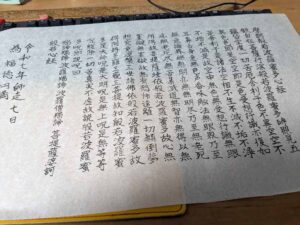 摩訶般若波羅蜜多心経
観自在菩薩行深般若波羅蜜多時照見五
蘊皆空度一切苦厄舎利子色不異空空不
異色色即是空空即是色受想行識亦復如
是舎利子是諸法空相不生不滅不垢不浄
不増不減是故空中無色無受想行識無眼
耳鼻舌身意無色声香味触法無眼界乃至
無意識界無無明亦無無明尽乃至無老死
亦無老死尽無苦集滅道無智亦無得以無
所得故菩提薩埵依般若波羅蜜多故心無
罣礙無罣礙故無有恐怖遠離一切顛倒夢
想究竟涅槃三世諸仏依般若波羅蜜多故
得阿耨多羅三藐三菩提故知般若波羅蜜
多是大神呪是大明呪是無上呪是無等等
呪能除一切苦真実不虚故説般若波羅蜜
多呪即説呪曰
羯諦羯諦波羅羯諦波羅僧羯諦菩提薩婆訶
般若心経
令和年師走七日
為